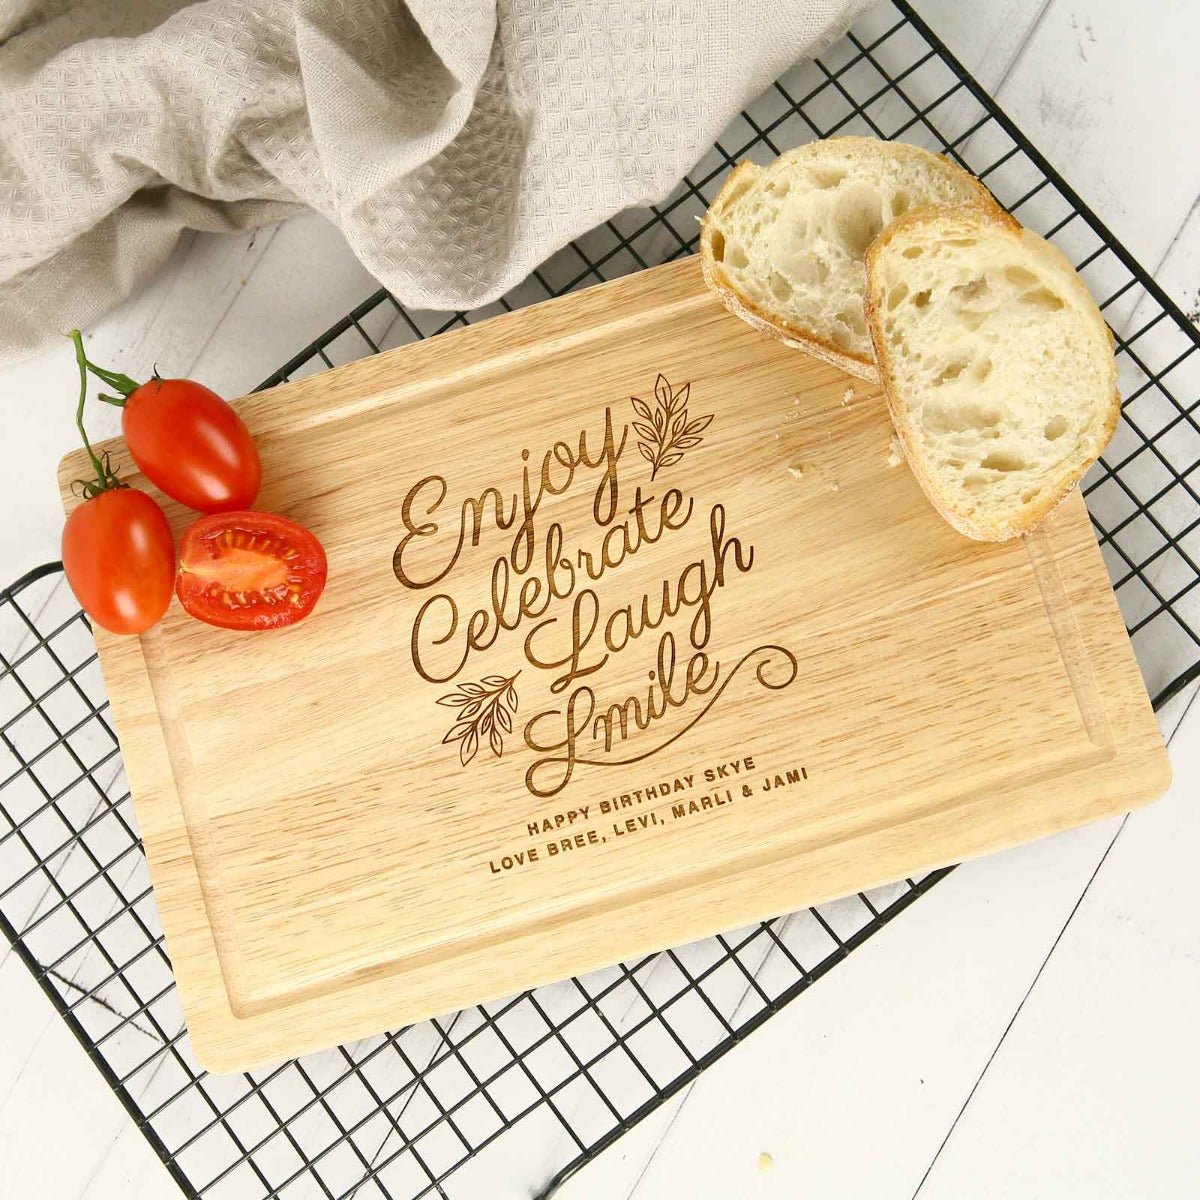 Enjoy
Celebrate
Laugh
Smile
HAPPY BIRTHDAY SKYE
LOVE BREE, LEVI, MARLI & JAMI